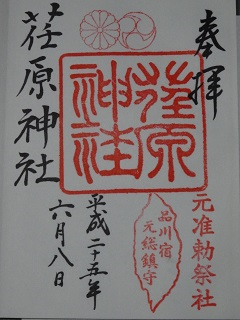 奉拝
元准勅祭社
品川宿
元総鎮守
荏原神社
荏原神社
平成二十五年
六月八日